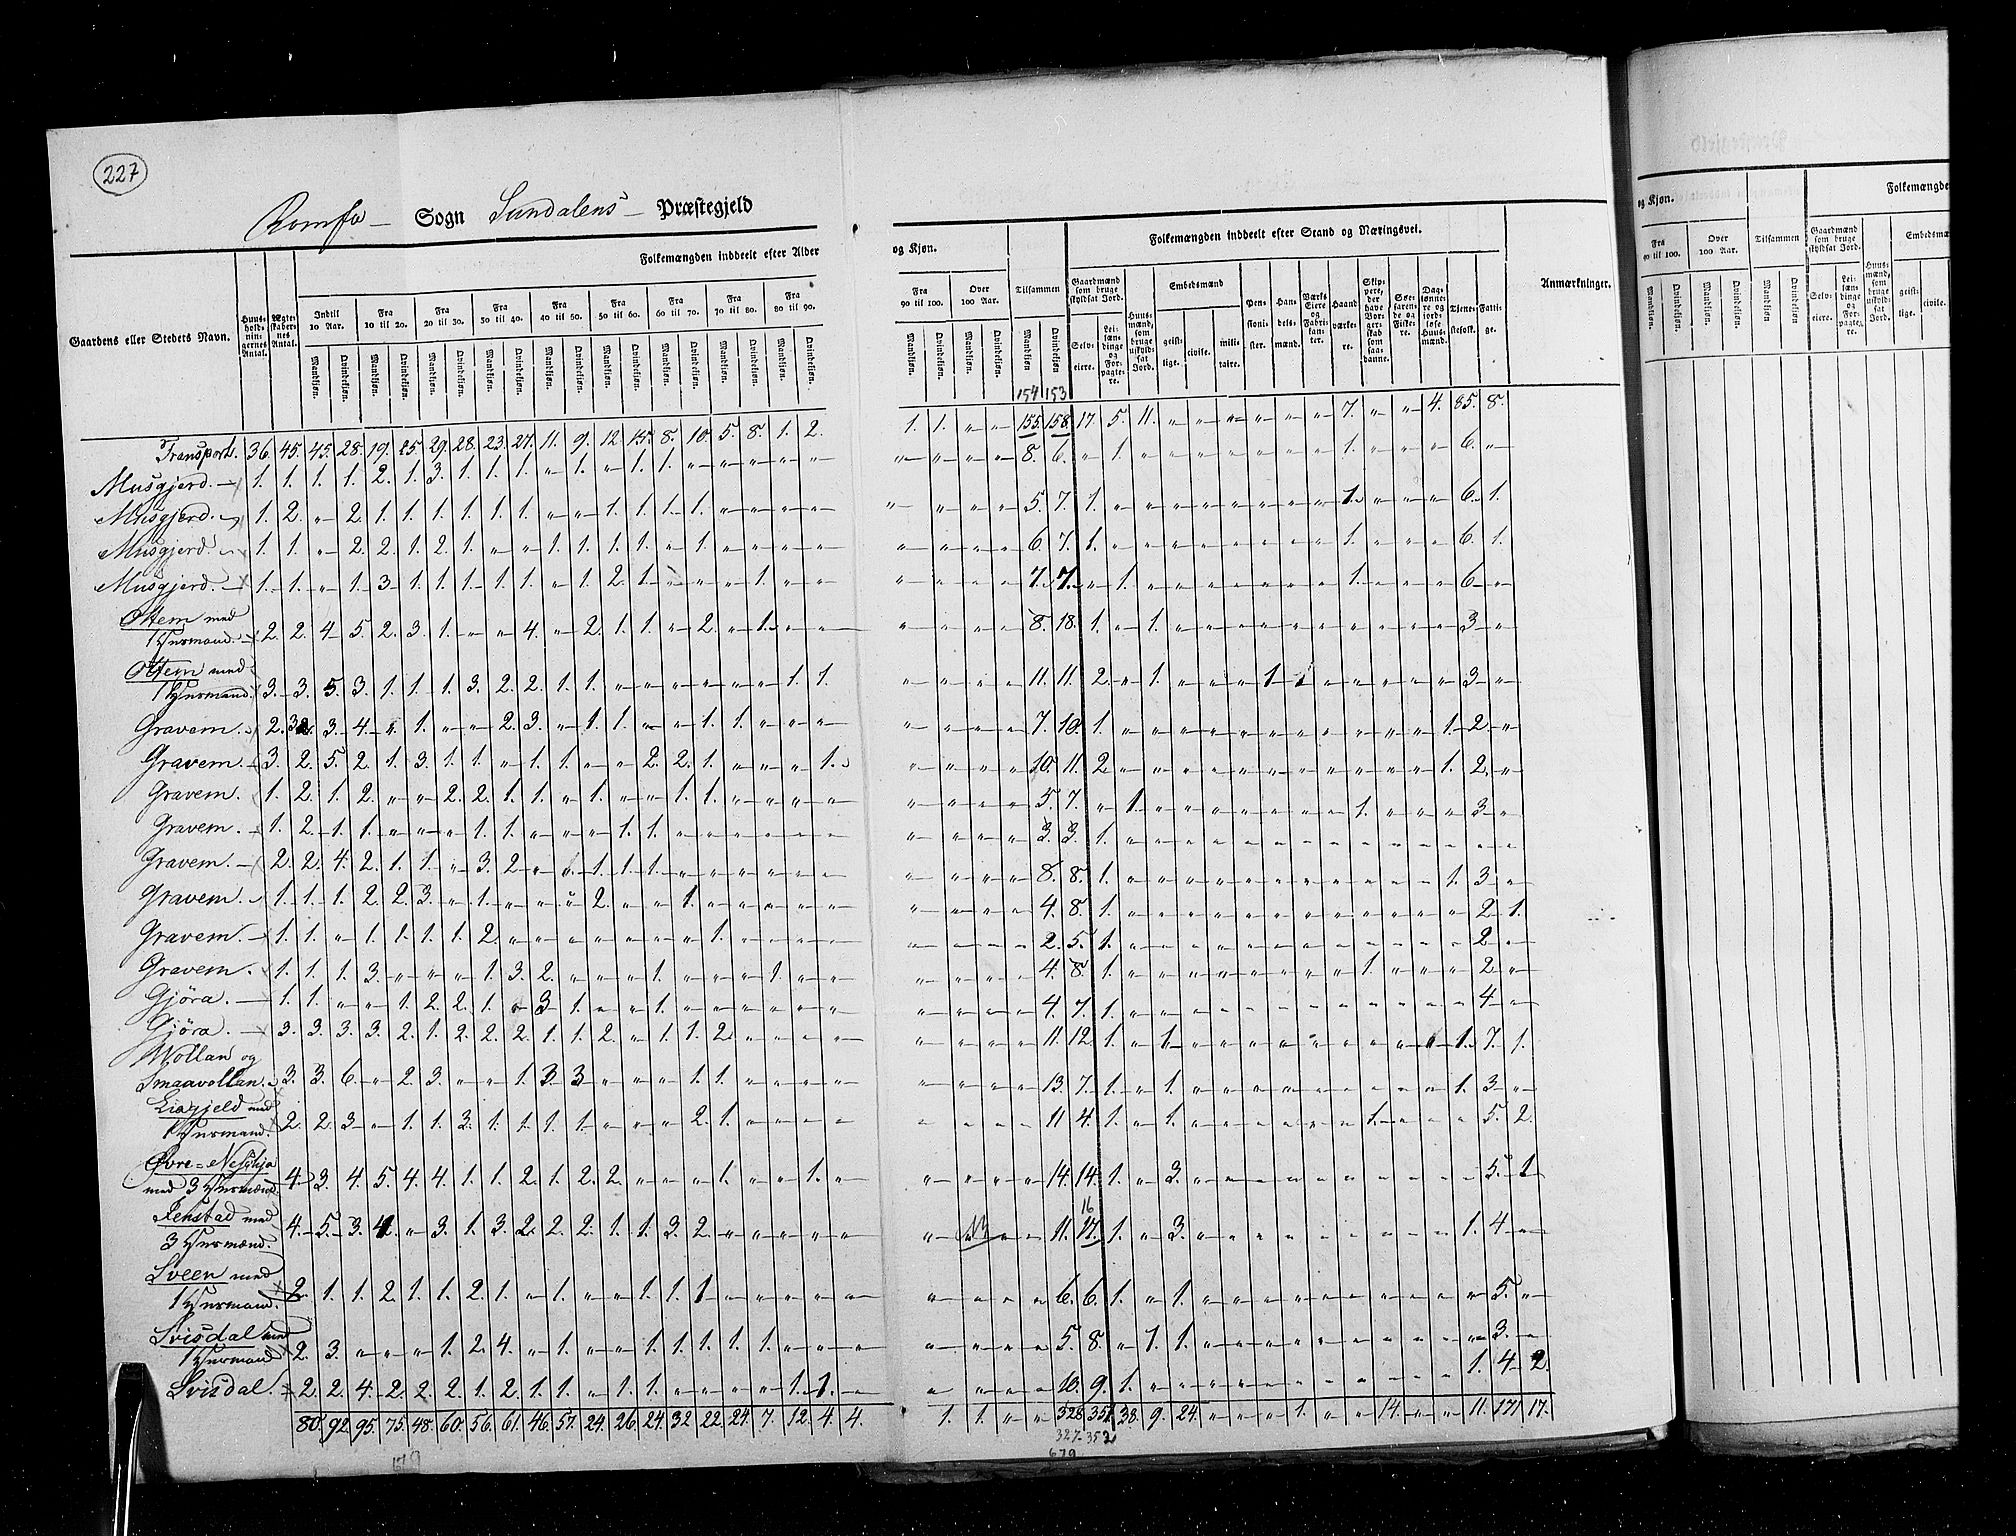 227
Romfo — Sogn Sundalens — Præstegjeld
Folkemængden inddeelt efter Alder og Kjøn.
Folkemængden inddeelt efter Stand og Næringsvei.
Gaardens eller Stedets Navn.
Huusholdningernes Antal.
Ægteskabernes Antal.
Indtil 10 Aar.
Fra 10 til 20.
Fra 20 til 30.
Fra 30 til 40.
Fra 40 til 50.
Fra 50 til 60.
Fra 60 til 70.
Fra 70 til 80.
Fra 80 til 90.
Fra 90 til 100.
Over 100 Aar.
Tilsammen
Mandkjøn. Qvindekjøn.
Gaardmænd som bruge skyldsat Jord.
Selveiere.
Leilændinge og Forpagtere.
Huusmænd, som bruge uskyldsat Jord.
Embedsmænd
geistlige. civile. militaire.
Pensionister.
Handelsmænd.
Værks Eiere og Fabrikanter.
Haandværkere.
Skippere, der have Borgerskab som saadanne.
Søefarende og Fiskere.
Daglønnere og jordløse Huusmænd.
Tjenestefolk.
Fattige.
Anmærkninger.
154 153
Transport. 36. 45. 45. 28. 19. 25. 29. 28. 23. 27. 11. 9. 12. 15. 8. 10. 5. 8. 1. 2. 1. 1. „ „ 155. 158. 17. 5. 11. „ „ „ „ „ „ 7. „ „ 4. 85. 8.
Musgjerd. 1. 1. 1. 1. 2. 1. 3. 1. 1. 1. „ 1. „ 1. 1. „ „ „ „ „ „ „ „ „ 8. 6. „ 1. „ „ „ „ „ „ „ 1. „ „ „ 6. „
Musgjerd. 1. 2. „ 2. 1. 1. 1. 1. 1. 1. „ „ 1. 1. 1. 1. „ „ „ „ „ „ „ „ 5. 7. 1. „ „ „ „ „ „ „ „ 1. „ „ „ 6. 1.
Musgjerd. 1. 1. „ 2. 2. 1. 2. 1. „ „ 1. 1. 1. 1. „ 1. „ „ „ „ „ „ „ „ 6. 7. 1. „ „ „ „ „ „ „ „ 1. „ „ „ 6. 1.
Musgjerd. 1. 1. „ 1. 3. 1. 1. 1. 1. 1. „ 1. 2. 1. „ „ „ 1. „ „ „ „ „ „ 7. 7. „ 1. „ „ „ „ „ „ „ 1. „ „ „ 6. „
Ottem med
1 Huusmand. 2. 2. 4. 5. 2. 3. 1. „ „ 4. „ 2. 1. 1. „ 2. „ 1. „ „ „ „ „ „ 8. 18. 1. „ 1. „ „ „ „ „ „ „ „ „ „ 3. „
Ottem med
1 Huusmand. 3. 3. 5. 3. 1. 1. 1. 3. 2. 2. 1. 1. „ „ „ „ „ „ 1. 1. „ „ „ „ 11. 11. 2. „ 1. „ „ „ 1 „ „ „ „ „ „ 3. „
Gravem. 2. 3. 3. 4. „ 1. „ „ 2. 3. „ 1. 1. „ „ 1. 1. „ „ „ „ „ „ „ 7. 10. 1. „ „ „ „ „ „ „ „ „ „ „ 1. 2. „
Gravem. 3. 2. 5. 2. 1. 3. 1. 1. „ 1. 1. „ „ 2. 2. 1. „ „ „ 1. „ „ „ „ 10. 11. 2. „ „ „ „ „ „ „ „ „ „ „ 1. 2. „
Gravem. 1. 2. 1. 2. „ „ 2. 2. 1. 1. „ 1. „ „ 1. 1. „ „ „ „ „ „ „ „ 5. 7. „ 1. „ „ „ „ „ „ „ 1. „ „ „ 3. „
Gravem. 1. 2. 1. 1. „ „ „ 1. 1. „ „ „ 1. 1. „ „ „ „ „ „ „ „ „ „ 3. 3. 1. „ „ „ „ „ „ „ „ „ „ „ „ „ „
Gravem. 2. 2. 4. 2. 1. 1. „ 3. 2. „ „ 1. 1. 1. „ „ „ „ „ „ „ „ „ „ 8. 8. 1. „ „ „ „ „ „ „ „ „ „ „ 1. 3. „
Gravem. 1. 1. 1. 2. 2. 3. „ 1. „ „ „ 2. „ „ 1. „ „ „ „ „ „ „ „ „ 4. 8. 1. „ „ „ „ „ „ „ „ „ „ „ „ 2. 1.
Gravem. 1. 1. „ 1. 1. 1. 1. 2. „ „ „ „ „ „ „ 1. „ „ „ „ „ „ „ „ 2. 5. 1. „ „ „ „ „ „ „ „ „ „ „ „ 2. „
Gravem. 1. 1. 1. 3. „ „ „ 1. 3. 2. „ „ „ 1. „ „ „ 1. „ „ „ „ „ „ 4. 8. 1. „ „ „ „ „ „ „ „ 1. „ „ „ 2. „
Gjöra. 1. 1. „ „ 1. 2. 2. 1. „ 3. 1. „ „ 1. „ „ „ „ „ „ „ „ „ „ 4. 7. 1. „ „ „ „ „ „ „ „ „ „ „ „ 4. „
Gjöra. 3. 3. 3. 3. 2. 1. 2. 2. 2. 1. 1. 2. „ 1. 1. 2. „ „ „ „ „ „ „ „ 11. 12. 1. „ 1. „ „ „ „ „ „ „ „ „ 1. 7. 1.
Wollan og
Smaavollan. 3. 3. 6. „ 2. 3. „ „ 1. 3. 3. „ „ „ 1. 1. „ „ „ „ „ „ „ „ 13. 7. 1. „ 1. „ „ „ „ „ „ „ „ „ 1. 3. „
Liagjeld med
1 Huusmand. 2. 2. 3. „ 1. 1. 3. 1. 1. 1. 1. „ „ „ 2. 1. „ „ „ „ „ „ „ „ 11. 4. 1. „ 1. „ „ „ „ „ „ 1. „ „ „ 5. 2.
Øvre=Nesthja
med 3 Huusmænd. 4. 3. 4. 5. 4. 4. 1. 1. 2. 1. 2. 2. „ „ „ 1. „ „ 1. „ „ „ „ „ 14. 14. 1. „ 3. „ „ „ „ „ „ „ „ „ „ 5. 1.
16
Jenstad med
3 Huusmænd. 4. 5. 3. 4. „ 3. 1. 3. 2. 2. 2. 1. 1. 3. 2. „ „ „ „ „ „ „ „ „ 11. 17. 1. „ 3. „ „ „ „ „ „ „ „ „ 1. 4. „
Sveen med
1 Huusmand. 2. 1. 1. 2. 1. 1. 2. 1. „ 1. „ „ 1. 1. 1. „ „ „ „ „ „ „ „ „ 6. 6. 1. „ 1. „ „ „ „ „ „ „ „ „ „ 5. „
Svisdal med
1 Huusmand 2. 3. „ „ „ 1. 2. 4. „ 1. „ „ 1. 1. 1. 1. 1. „ „ „ „ „ „ „ 5. 8. „ 1. 1. „ „ „ „ „ „ „ „ „ „ 3. „
Svisdal. 2. 2. 4. 2. 2. 2. 1. 2. 1. 1. „ 1. 1. „ „ „ „ 1. 1. „ „ „ „ „ 10. 9. 1. „ „ „ „ „ „ „ „ „ „ „ 1. 4. 2.
80. 92. 95. 75. 48. 60. 56. 61. 46. 57. 24. 26. 24. 32. 22. 24. 7. 12. 4. 4. 1. 1. „ „ 328. 351. 38. 9. 24. „ „ „ 1. „ „ 14. „ „ 11. 171. 17.
327. 352
679
679